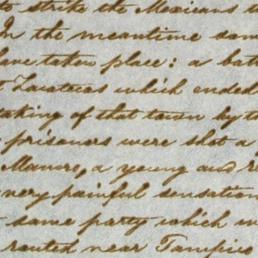 to strike the Mexicans
In the meantime some
have taken place: a batt
t Zacatecas which ended
taking of that town by t
prisoners were shot a
Manero, a young and r
very painful sensation
same party which w
routed near Tampico